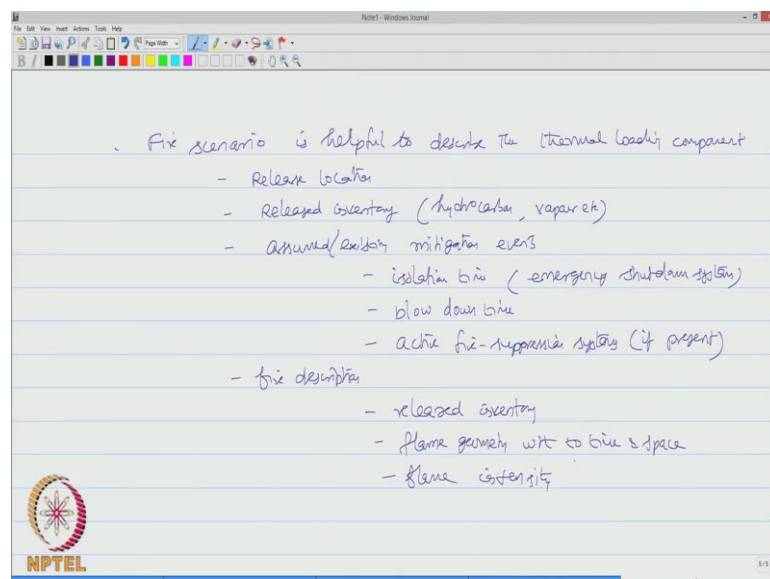 Note1 - Windows Journal
File Edit View Insert Actions Tools Help
Page Width
B I
. Fire scenario is helpful to describe the thermal loading component
- Release location
- Released inventory (hydrocarbon, vapour etc)
- assumed/existing mitigation events
- isolation time (emergency shutdown system)
- blow down time
- active fire-suppression systems (if present)
- fire description
- released inventory
- flame geometry wrt to time & space
- flame intensity
NPTEL
5/5